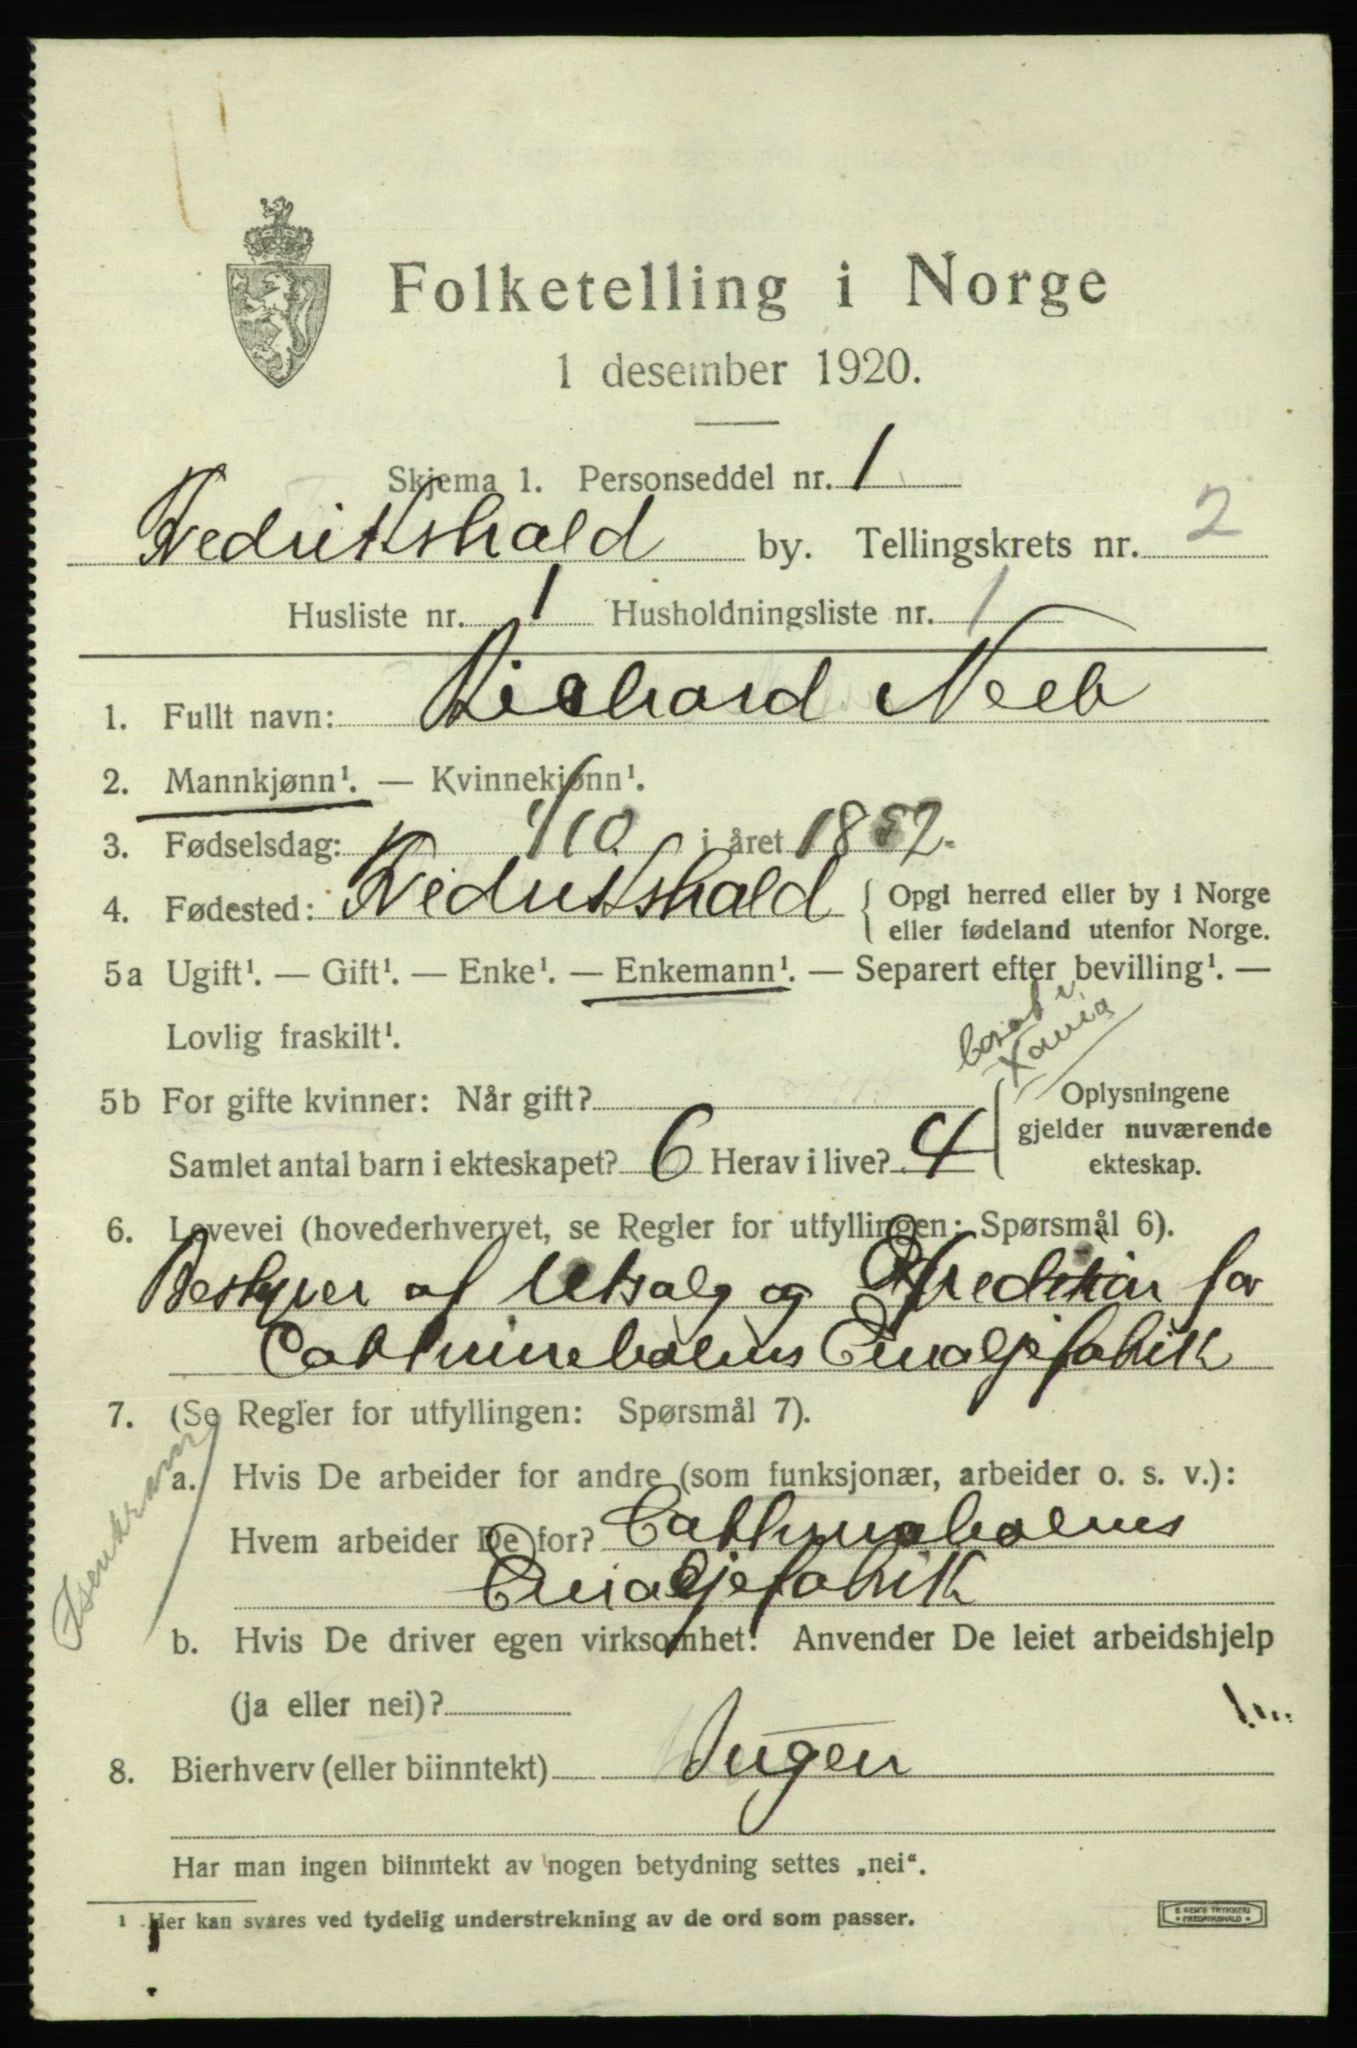 Folketelling i Norge
1 desember 1920.
Skjema 1. Personseddel nr. 1
Fredrikshald by. Tellingskrets nr. 2
Husliste nr. 1 Husholdningsliste nr. 1
1. Fullt navn: Richard Neeb
2. Mannkjønn¹. — Kvinnekjønn¹.
3. Fødselsdag: 1/10 i året 1852.
4. Fødested: Fredrikshald { Opgi herred eller by i Norge
eller fødeland utenfor Norge.
5a Ugift¹. — Gift¹. — Enke¹. — Enkemann¹. — Separert efter bevilling¹. —
Lovlig fraskilt¹.
bosat i
Xania
5b For gifte kvinner: Når gift?
Samlet antal barn i ekteskapet? 6 Herav i live? 4
Oplysningene
gjelder nuværende
ekteskap.
6. Levevei (hovederhvervet, se Regler for utfyllingen: Spørsmål 6).
Bestyrer af Utsalg og for
Cathrineholms Emaljefabrik
7. (Se Regler for utfyllingen: Spørsmål 7).
a. Hvis De arbeider for andre (som funksjonær, arbeider o. s. v.):
Hvem arbeider De for? Cathrineholms
Emaljefabrik
Isenkram
b. Hvis De driver egen virksomhet: Anvender De leiet arbeidshjelp
(ja eller nei)?
8. Bierhverv (eller biinntekt) Ingen
Har man ingen biinntekt av nogen betydning settes „nei“.
¹ Her kan svares ved tydelig understrekning av de ord som passer.
E. SEM'S TRYKKERI
FREDRIKSHALD